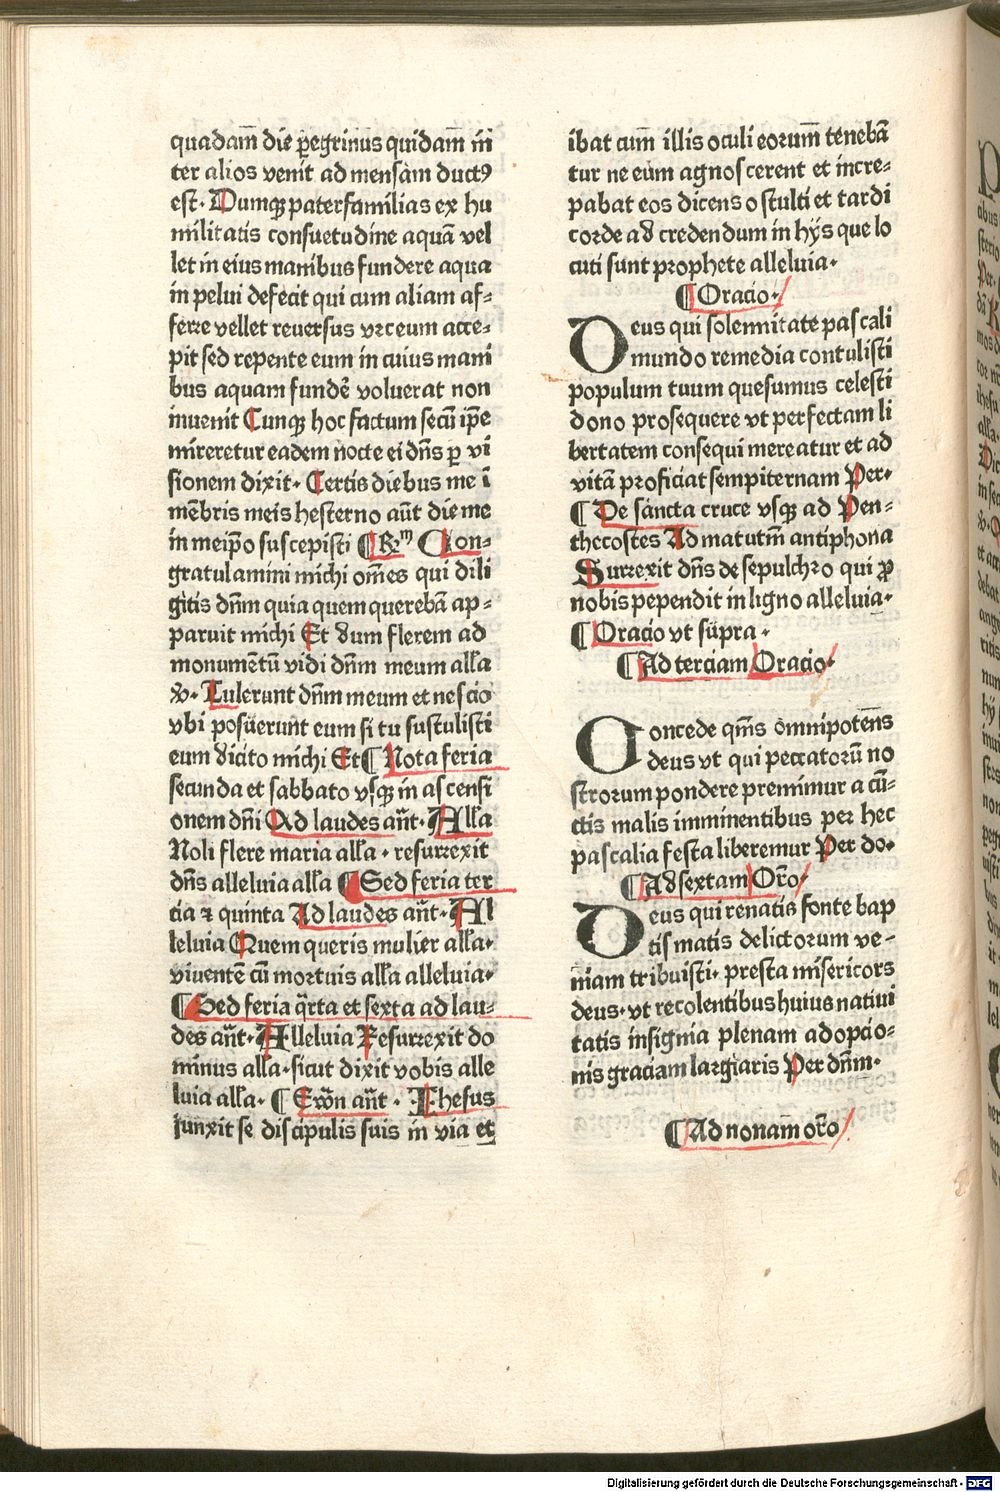 quadam̄ die ꝑegrinus quidam̄ in̄
ter alios venit ad mensam ductꝰ
est. Dumqꝫ paterfamilias ex hu
militatis consuetudine aquā vel
let in eius manibus fundere aqua
in pelui defecit qui cum aliam af⸗
ferre vellet reuersus vrceum acce⸗
pit sed repente eum in cuius mani
bus aquam fundē voluerat non
inuenit Cunqꝫ hoc factum secū ip̄e
mireretur eadem nocte ei dn̄s ꝑ vi
sionem dixit. Certis diebus me ī
mēbris meis hesterno aūt die me
in meip̄o suscepisti ¶ Rm̄ Con⸗
gratulamini michi om̄es qui dili
gitis dn̄m quia quem querebā ap⸗
paruit michi Et dum flerem ad
monumētū vidi dn̄m meum alla
v̄. Tulerunt dn̄m meum et nescio
vbi posuerunt eum si tu sustulisti
eum dicito michi Et ¶ Nota feria
secunda et sabbato vsqꝫ in ascensi
onem dn̄i Ad laudes an̄t. Alla
Noli flere maria alla. resurrexit
dn̄s alleluia alla ¶ Sed feria ter
tia ⁊ quinta Ad laudes an̄t. Al
leluia Quem queris mulier alla.
viventē cū mortuis alla alleluia.
¶ Sed feria q̄rta et sexta ad lau⸗
des an̄t. Alleluia Resurrexit do
minus alla. sicut dixit vobis alle
luia alla. ¶ Ewn̄ an̄t. Ihesus
iunxit se discipulis suis in via et
ibat cum illis oculi eorum tenebā
tur ne eum agnoscerent et incre⸗
pabat eos dicens o stulti et tardi
corde ad credendum in hijs que lo
cuti sunt prophete alleluia.
¶ Oracio.
Deus qui solemnitate pascali
mundo remedia contulisti
populum tuum quesumus celesti
dono prosequere vt perfectam li
bertatem consequi mereatur et ad
vitā proficiat sempiternam Per.
¶ De sancta cruce vsqꝫ ad Pen⸗
thecostes Ad matutin̄ antiphona
Surrexit dn̄s de sepulchro qui ꝓ
nobis pependit in ligno alleluia.
¶ Oracio vt supra.
¶ Ad terciam Oracio.
Concede qm̄s omnipotēns
deus vt qui peccatorū no
strorum pondere premimur a cū⸗
ctis malis imminentibus per hec
pascalia festa liberemur Per do.
¶ Ad sextam Orō
Deus qui renatis fonte bap
tismatis delictorum ve⸗
niam tribuisti. presta misericors
deus. vt recolentibus huius natiui
tatis insignia plenam adopcio⸗
nis graciam largiaris Per dn̄m.
¶ Ad nonam orō
Digitalisierung gefördert durch die Deutsche Forschungsgemeinschaft - DFG